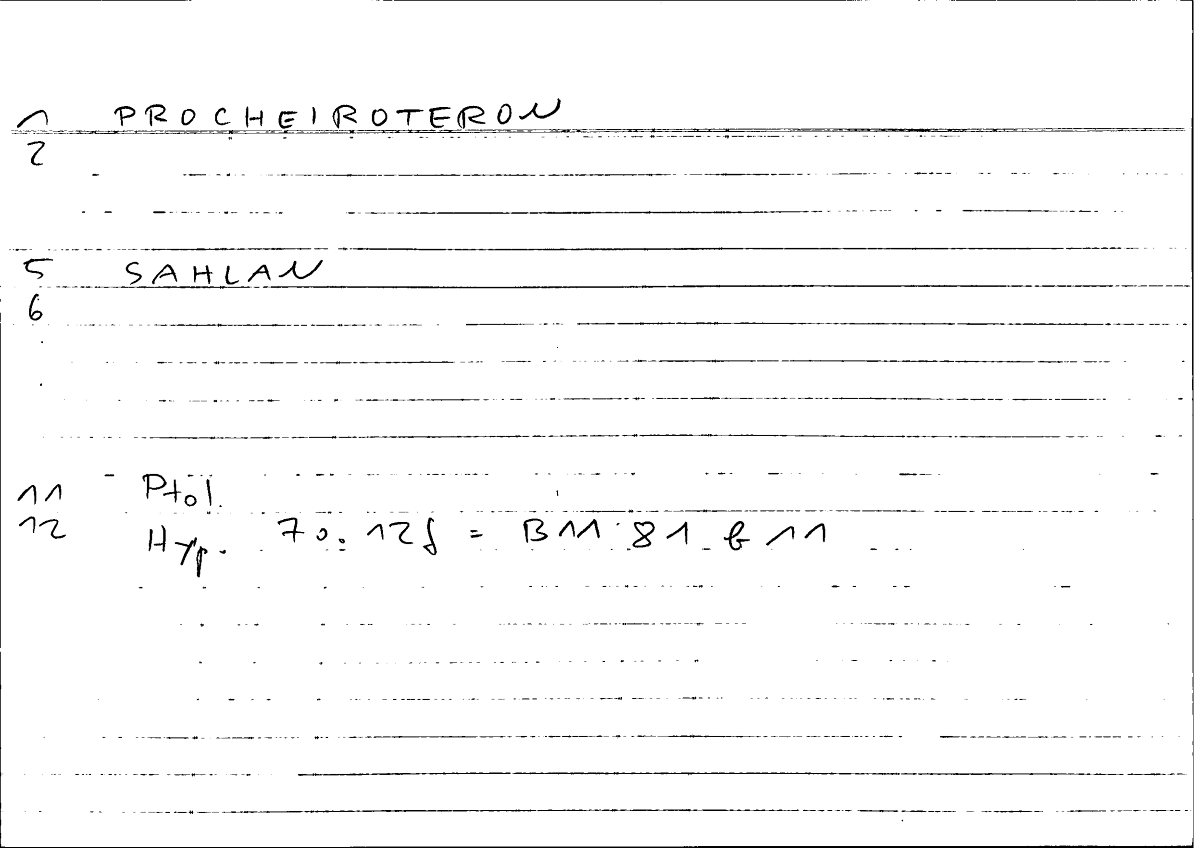 1 PROCHEIROTERON
2
5 SAHLAN
6
11 Ptol.
12 Hyp. 70.12f = B11 81 b 11